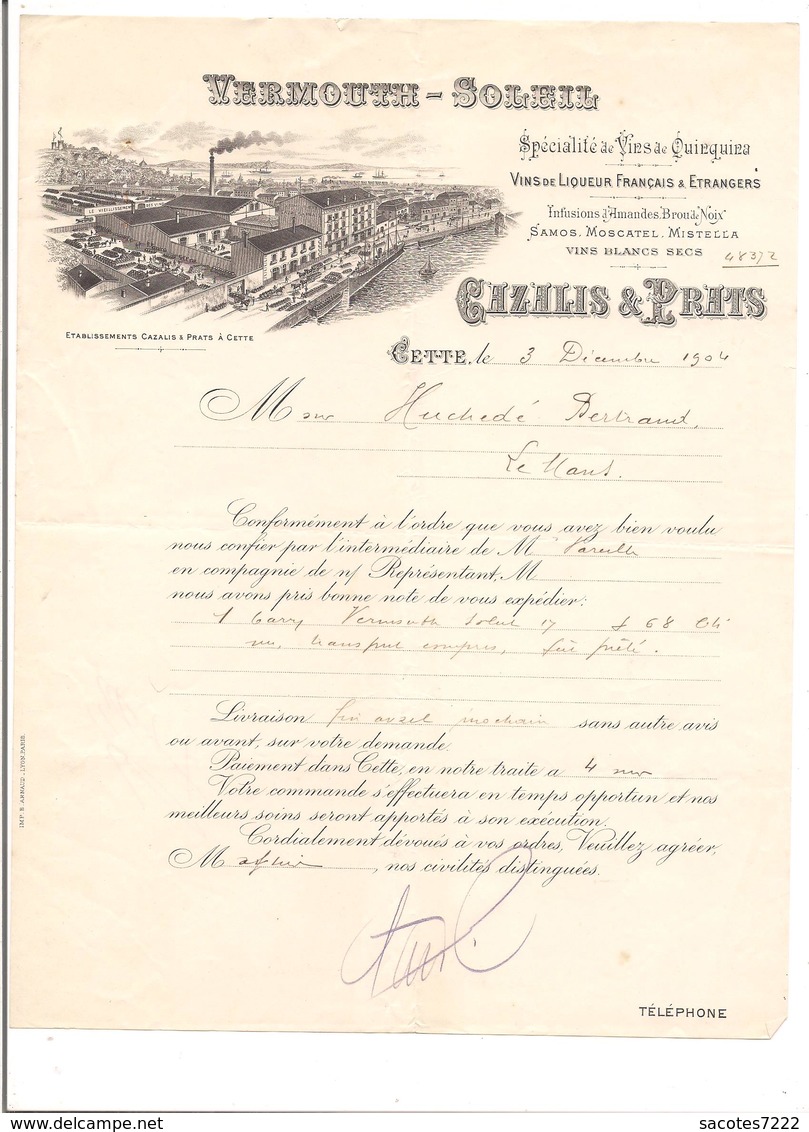 VERMOUTH - SOLEIL
Spécialité de Vins de Quinquina
VINS DE LIQUEUR FRANÇAIS & ETRANGERS
Infusions d'Amandes, Brou de Noix
SAMOS, MOSCATEL, MISTELLA
VINS BLANCS SECS
48372
CAZALIS & PRATS
LE VIEILLISSEMENT DES VINS
ETABLISSEMENTS CAZALIS & PRATS À CETTE
CETTE, le 3 Décembre 1904
M Huchedé Bertrand,
Le Mans.
Conformément à l'ordre que vous avez bien voulu
nous confier par l'intermédiaire de M
en compagnie de n/ Représentant, M
nous avons pris bonne note de vous expédier:
1 Vermouth Soleil 68
transport compris, fût prêté.
Livraison fin prochain sans autre avis
ou avant, sur votre demande.
Paiement dans Cette, en notre traite a 4
Votre commande s'effectuera en temps opportun et nos
meilleurs soins seront apportés à son exécution.
Cordialement dévoués à vos ordres, Veuillez agréer,
M , nos civilités distinguées.
TÉLÉPHONE
IMP. B. ARNAUD - LYON-PARIS
delcampe.net
sacotes7222